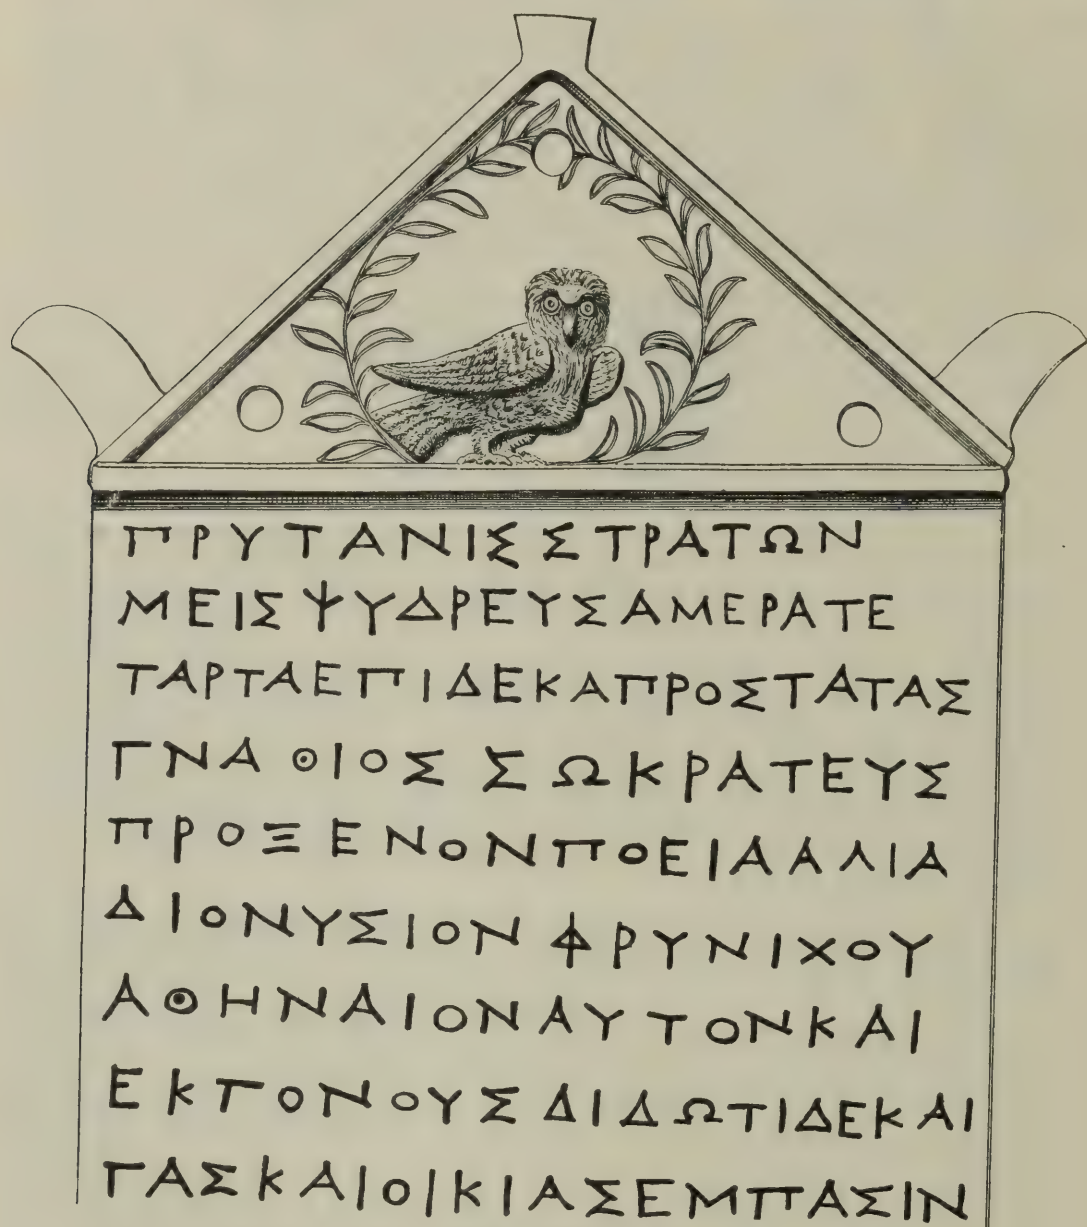 ΠΡΥΤΑΝΙΣΣΤΡΑΤΩΝ
ΜΕΙΣΨΥΔΡΕΥΣΑΜΕΡΑΤΕ
ΤΑΡΤΑΕΠΙΔΕΚΑΠΡΟΣΤΑΤΑΣ
ΓΝΑΘΙΟΣ ΣΩΚΡΑΤΕΥΣ
ΠΡΟΞΕΝΟΝΠΟΕΙΑΑΛΙΑ
ΔΙΟΝΥΣΙΟΝ ΦΡΥΝΙΧΟΥ
ΑΘΗΝΑΙΟΝΑΥΤΟΝΚΑΙ
ΕΚΓΟΝΟΥΣΔΙΔΩΤΙΔΕΚΑΙ
ΓΑΣΚΑΙΟΙΚΙΑΣΕΜΠΑΣΙΝ